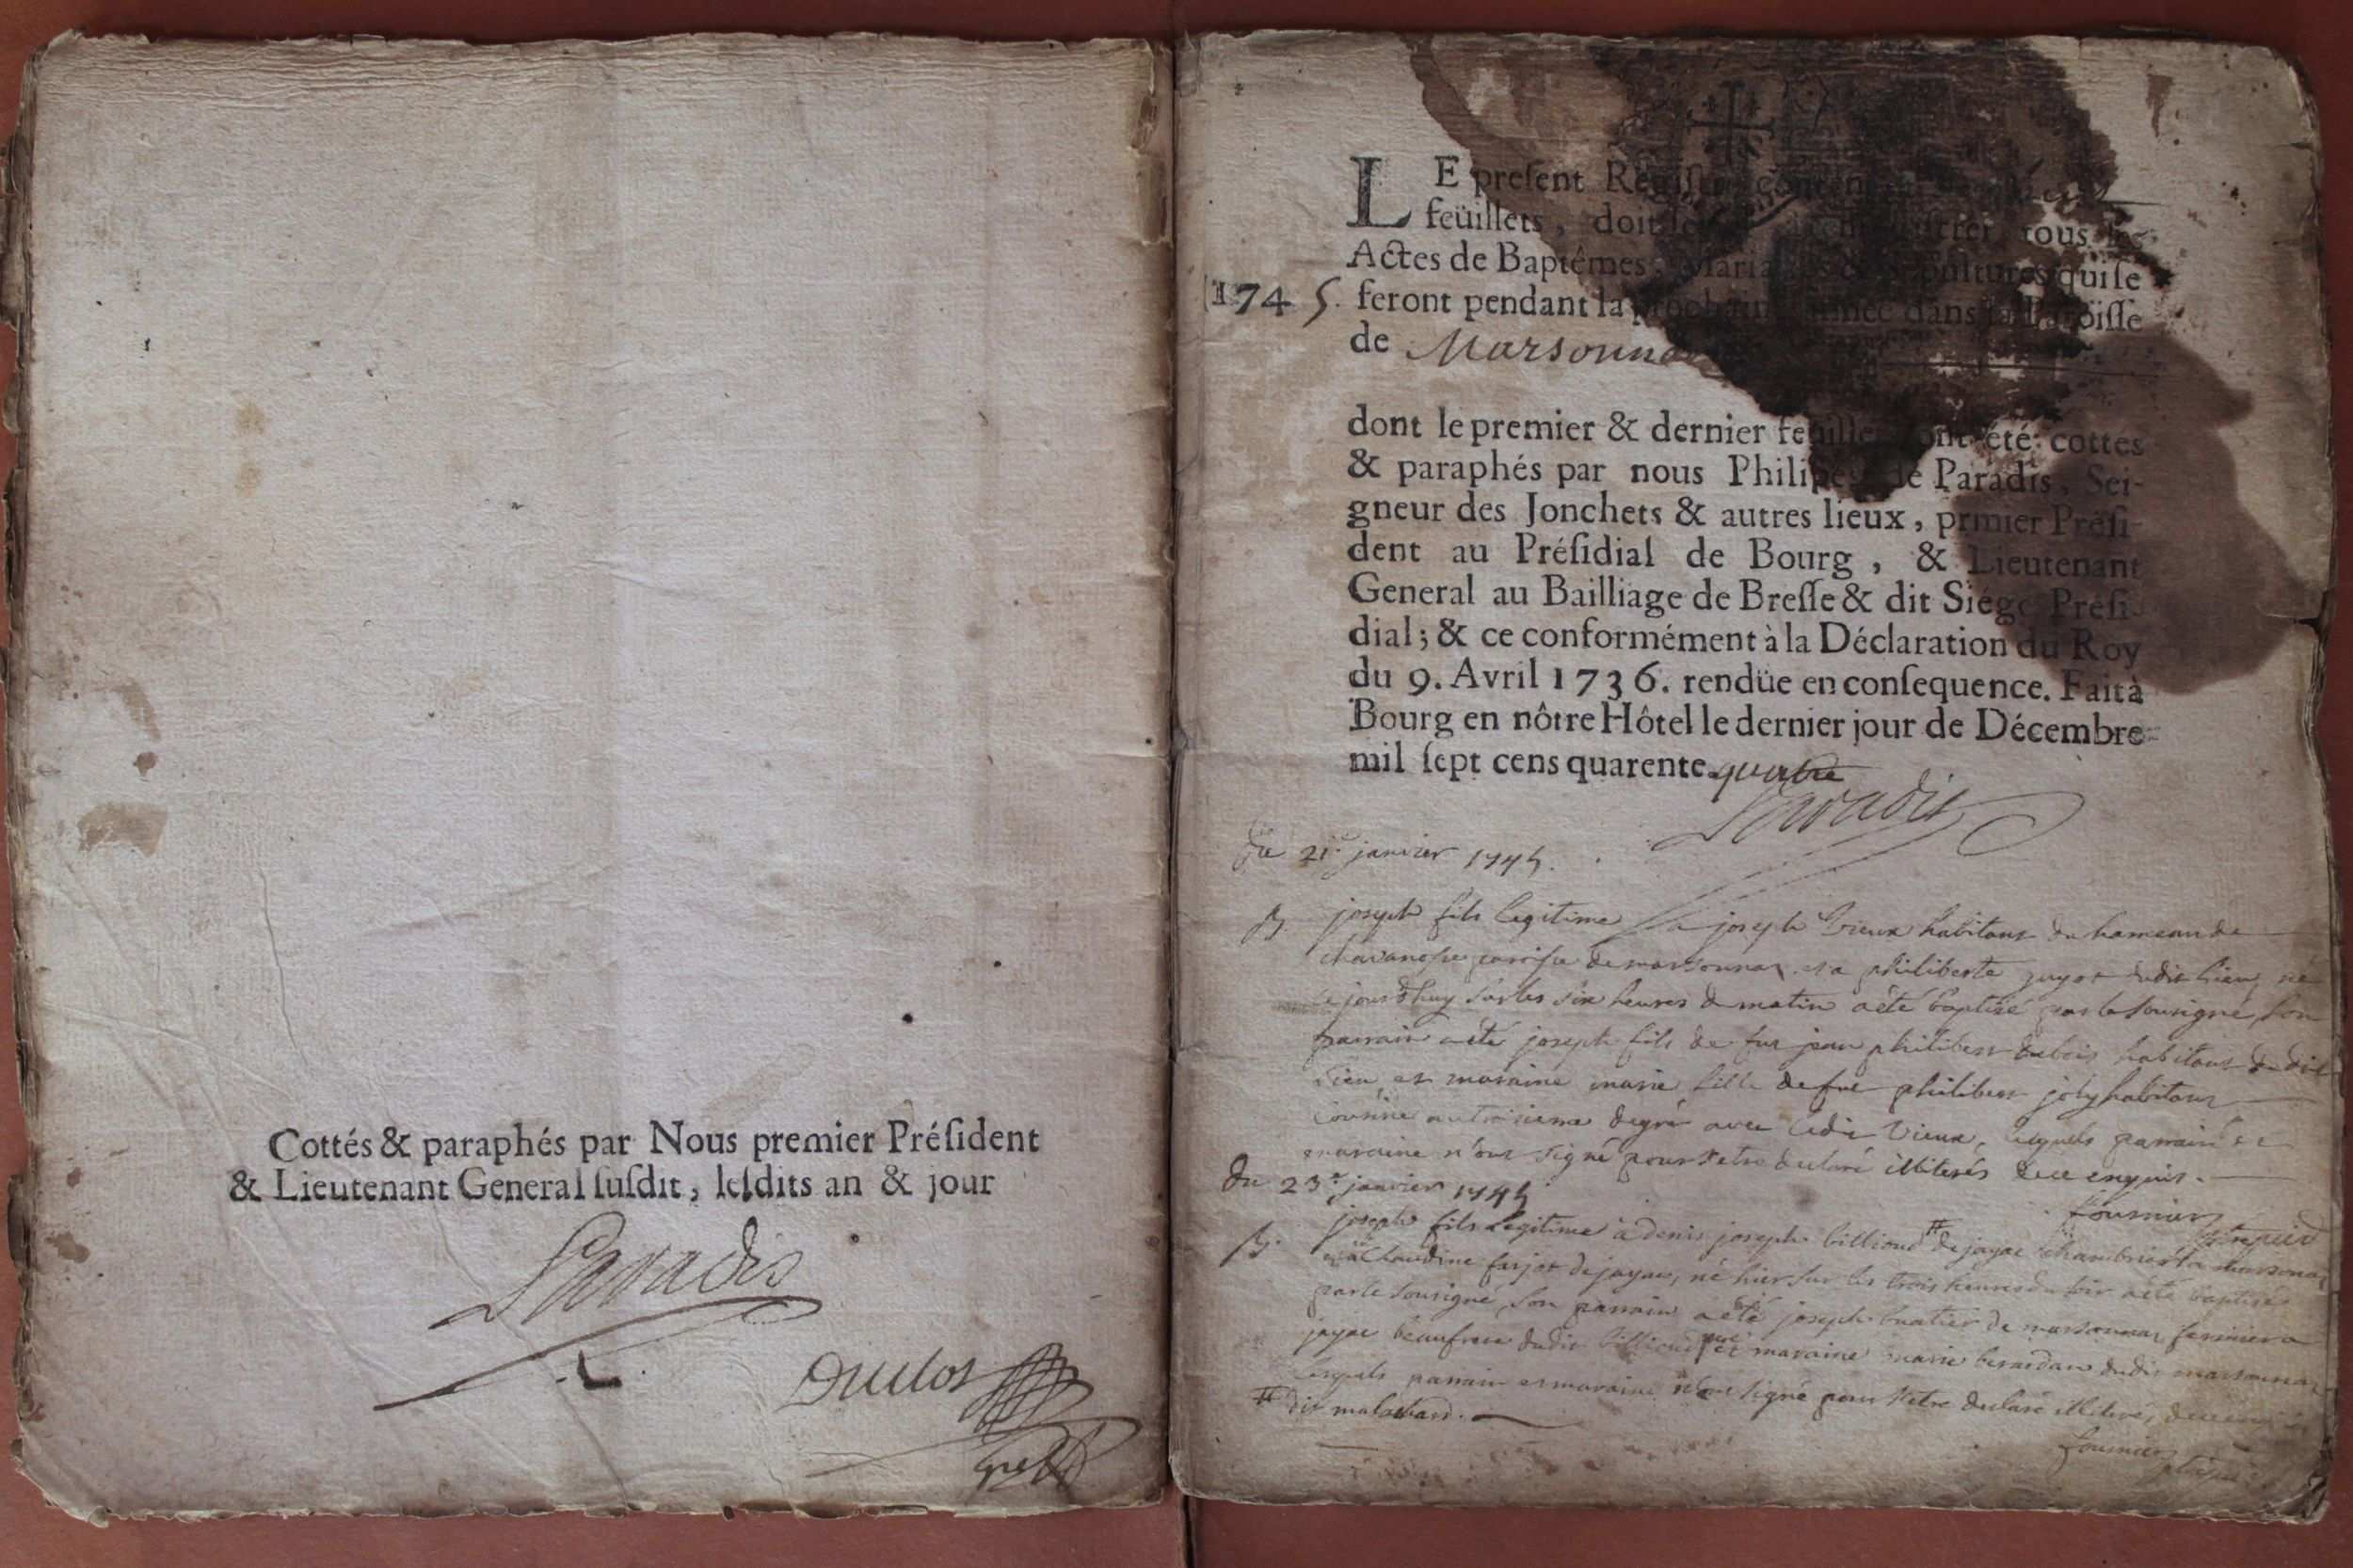 Cottés & paraphés par Nous premier Préſident
& Lieutenant General ſuſdit, leſdits an & jour
Paradis
Duclos
LE preſent Regiſtre
feüillets, doit tous les
Actes de Baptêmes, Mariages & Sépultures qui ſe
1745. feront pendant la prochaine année dans la Paroiſſe
de Marsonnas
dont le premier & dernier feuillets ont été cottés
& paraphés par nous Philipes de Paradis, Sei-
gneur des Jonchets & autres lieux, prmier Préſi-
dent au Préſidial de Bourg, & Lieutenant
General au Bailliage de Breſſe & dit Siége Préſi-
dial; & ce conformément à la Déclaration du Roy
du 9. Avril 1736. rendüe en conſequence. Fait à
Bourg en nôtre Hôtel le dernier jour de Décembre
mil ſept cens quarente quatre
Paradis
Du 21e janvier 1745.
B joseph fils legitime a joseph Vieux habitant du hameau de
paroisse de marsonnas et a philiberte guyot dudit lieu, né
ce jourdhuy sur les six heures du matin a été baptisé par le sousigné, son
parrain a été joseph fils de feu jean philibert dubois habitant dudit
lieu et maraine marie fille de feu philibert joly habitant
cousine au troisieme degré avec ledit Vieux, lesquels parrain et
maraine n'ont signé pour s'etre declaré illiterés de ce enquis.
Du 23e janvier 1745
fournier
B. joseph fils legitime à denis joseph billioud # de jayac a marsonnas
et a Claudine farjot de jayac, né hier sur les trois heures du soir a été baptisé
par le sousigné, son parrain a été joseph buatier de marsonnas fermier a
jayac beaufrere dudit billioud et maraine marie dudit marsonnas
lesquels parrain et maraine n'ont signé pour s'etre declaré illiterés, de ce enquis
# dit malachard.
fournier